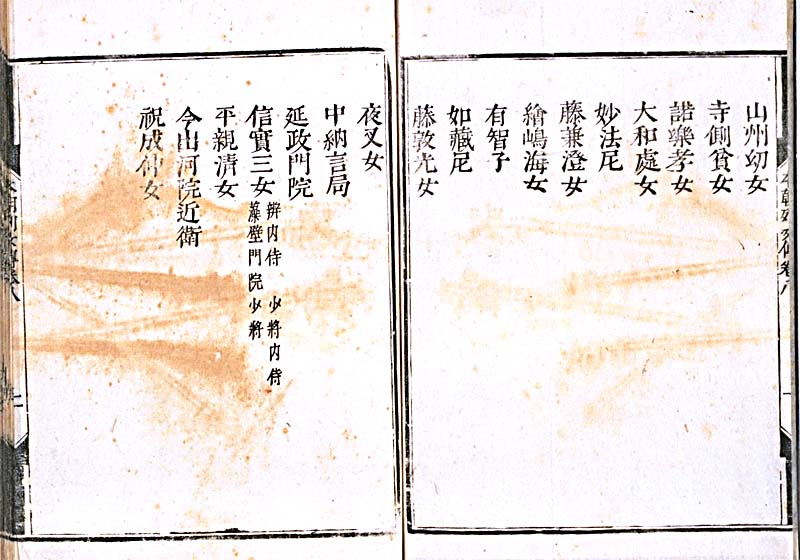 山州幼女
寺側貧女
諾樂孝女
大和處女
妙法尼
藤兼澄女
繪嶋海女
有智子
如藏尼
藤敦光女
夜叉女
中納言局
延政門院
信實三女 辨内侍 少將内侍 藻壁門院少將
平親清女
今出河院近衛
祝成仲女